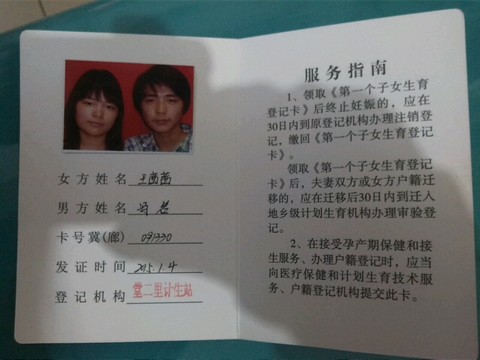 女方姓名 王茜茜
男方姓名
卡号冀(廊) 091330
发证时间 2015.1.4
登记机构 堂二里计生站
服务指南
1、领取《第一个子女生育
登记卡》后终止妊娠的，应在
30日内到原登记机构办理注销登
记，缴回《第一个子女生育登记
卡》。
领取《第一个子女生育登记
卡》后，夫妻双方或女方户籍迁
移的，应在迁移后30日内到迁入
地乡级计划生育机构办理审验登
记。
2、在接受孕产期保健和接
生服务、办理户籍登记时，应当
向医疗保健和计划生育技术服
务、户籍登记机构提交此卡。